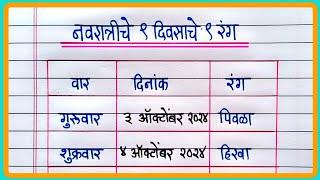 नवरात्रीचे ९ दिवसाचे ९ रंग
वार दिनांक रंग
गुरुवार ३ ऑक्टोंबर २०२४ पिवळा
शुक्रवार ४ ऑक्टोंबर २०२४ हिरवा